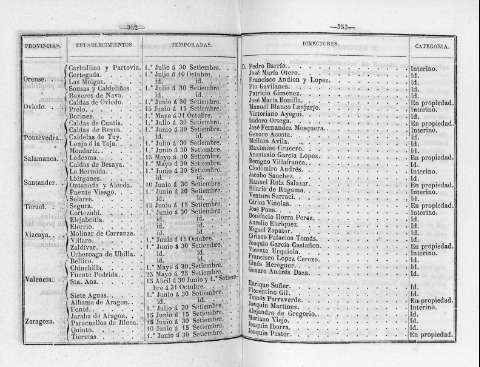 —352—
PROVINCIAS. ESTABLECIMIENTOS TEMPORADAS.
Orense.
Oviedo.
Pontevedra.
Salamanca.
Santander.
Teruel.
Vizcaya.
Valencia.
Zaragoza.
Carballino y Partovia. 1.° Julio á 30 Setiembre.
Cortegada. 1.° Julio á 10 Octubre.
Las Molgas. id. id.
Sousas y Caldeliñas 1.° Julio á 30 Setiembre.
Buyeres de Nava. id. id.
Caldas de Oviedo. 1.° Junio á 30 Setiembre.
Prelo. 1.° Junio á 15 Setiembre.
Borines. 1.° Mayo á 31 Octubre.
Caldas de Cuntis. 1.° Julio á 30 Setiembre.
Caldas de Reyes. 1.° Junio á 30 Setiembre.
Caldelas de Tuy. id. id.
Lonjo ó la Toja. 1.° Junio á 30 Setiembre.
Mondariz. 1.° Junio á 30 Setiembre.
Ledesma. 15 Mayo á 30 Setiembre.
Caldas de Besaya. 1.° Junio á 30 Setiembre.
La Hermida. 1.° Junio á 30 Setiembre.
Liérganes. id. id.
Ontaneda y Alceda. 10 Junio á 30 Setiembre.
Puente Viesgo. 1.° Junio á 30 Setiembre.
Solares. id. id.
Segura. 15 Junio á 15 Setiembre.
Cortezubi. 1.° Junio á 30 Setiembre.
Elejabeitia. id. id.
Elorrio. id. id.
Molinar de Carranza. id. id.
Villaro. 1.° Junio á 15 Octubre.
Zaldívar. 1.° Junio á 30 Setiembre.
Urberoaga de Ubilla. id. id.
Bellús. id. id.
Chinchilla. 1.° Mayo á 30 Setiembre.
Fuente Podrida. 25 Mayo á 25 Setiembre.
Sta. Ana. 15 Abril á 30 Junio y 1.° Setiem-
bre á 31 Octubre.
Siete Aguas. 1.° Junio á 30 Setiembre.
Alhama de Aragon. id. id.
Fonté. 1.° Julio á 30 Setiembre.
Jaraba de Aragon. 15 Junio á 15 Setiembre.
Paracuellos de Jiloca. 15 Junio á 30 Setiembre.
Quinto. 15 Junio á 15 Setiembre.
Tiermas. 1.° Junio á 30 Setiembre.
—353—
DIRECTORES. CATEGORIA.
D. Pedro Barrio. Interino.
José María Otero. Id.
Francisco Andica y Lopez. Id.
Pio Gavilanes. Id.
Patricio Gimenez. Id.
José María Bonilla. En propiedad.
Manuel Blanco Lavjarjo. Interino.
Victoriano Ayogui. Id.
Isidoro Ortega. En propiedad.
José Fernandez Mosquera. Interino.
Genaro Acosta. Id.
Meliton Avila. Id.
Maximino Crucero. Id.
Anastasio Garcia Lopez. En propiedad.
Benigno Villafranca. Id.
Clodomiro Andrés. Interino.
Jacobo Sanchez. Id.
Manuel Ruiz Salazar. En propiedad.
Hilario de Rugama. Id.
Ventura Serraci. Id.
Cárlos Viñolas. En propiedad.
José Pons. Interino.
Bonifacio Iborra Perez. Id.
Aurelio Enriquez. Id.
Miguel Zapater. Id.
Ciriaco Palacios Tomás. Id.
Joaquin Garcia Castañon. En propiedad.
Vicente Urquiola. Interino.
Francisco Lopez Cerezo. Id.
Ginés Mereguer. Id.
Genaro Andrés Daza. Id.
Enrique Suñer. Id.
Florentino Gil. Id.
Tomás Parraverde. En propiedad.
Joaquin Martinez. Interino.
Alejandro de Gregorio. Id.
Mariano Viejo. Id.
Joaquin Iborra. Id.
Joaquin Pastor. En propiedad.